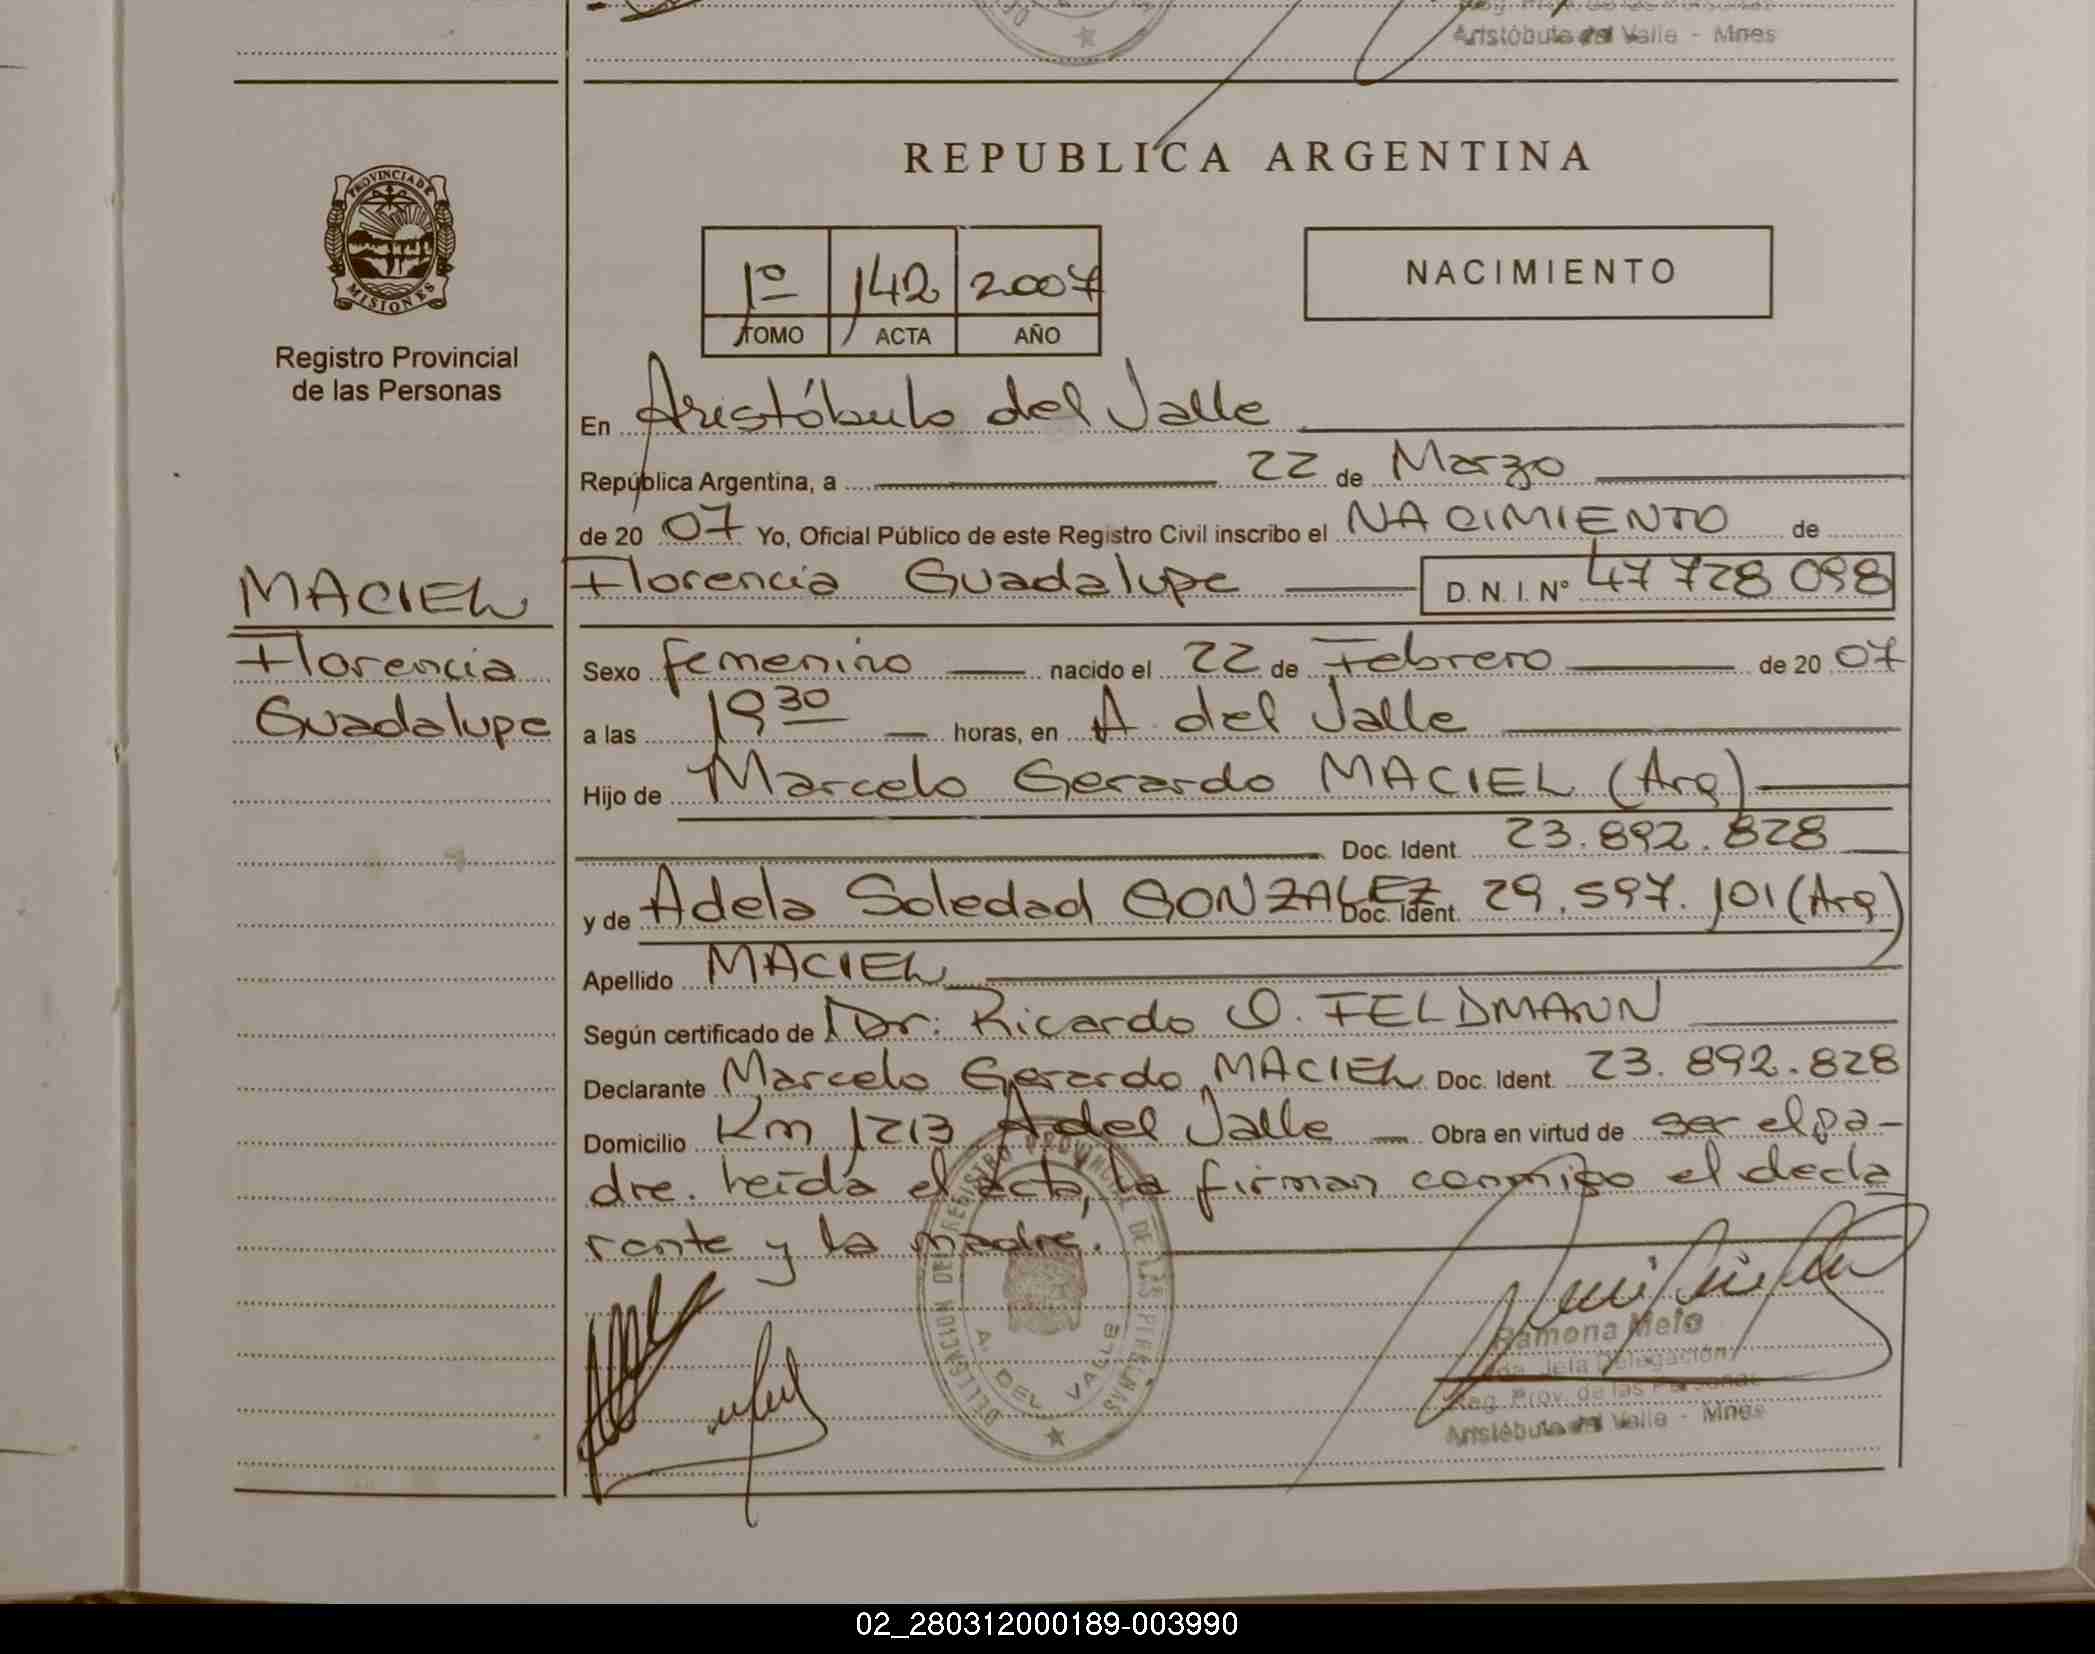 Aristóbulo del Valle - Mnes
REPUBLICA ARGENTINA
PROVINCIA DE
MISIONES
Registro Provincial
de las Personas
1º 142 2007
TOMO ACTA AÑO
NACIMIENTO
En Aristóbulo del Valle
República Argentina, a 22 de Marzo
de 20 07 Yo, Oficial Público de este Registro Civil inscribo el NACIMIENTO de
MACIEL
Florencia
Guadalupe
Florencia Guadalupe D. N. I. Nº 47 728 098
Sexo femenino nacido el 22 de Febrero de 20 07
a las 19 30 horas, en A del Valle
Hijo de Marcelo Gerardo MACIEL (Arg)
Doc. Ident. 23.892.828
y de Adela Soledad GONZALEZ Doc. Ident. 29.597.101 (Arg)
Apellido MACIEL
Según certificado de Dr. Ricardo O. FELDMANN
Declarante Marcelo Gerardo MACIEL Doc. Ident. 23.892.828
Domicilio Km 1213 A del Valle Obra en virtud de ser el pa-
dre. Leída el acta, la firman conmigo el decla
rante y la madre.
DELEGACION DEL REGISTRO PROVINCIAL DE LAS PERSONAS
A. DEL VALLE
Ramona Melo
Jefa Delegación
Reg. Prov. de las Personas
Aristóbulo del Valle - Mnes
02_280312000189-003990